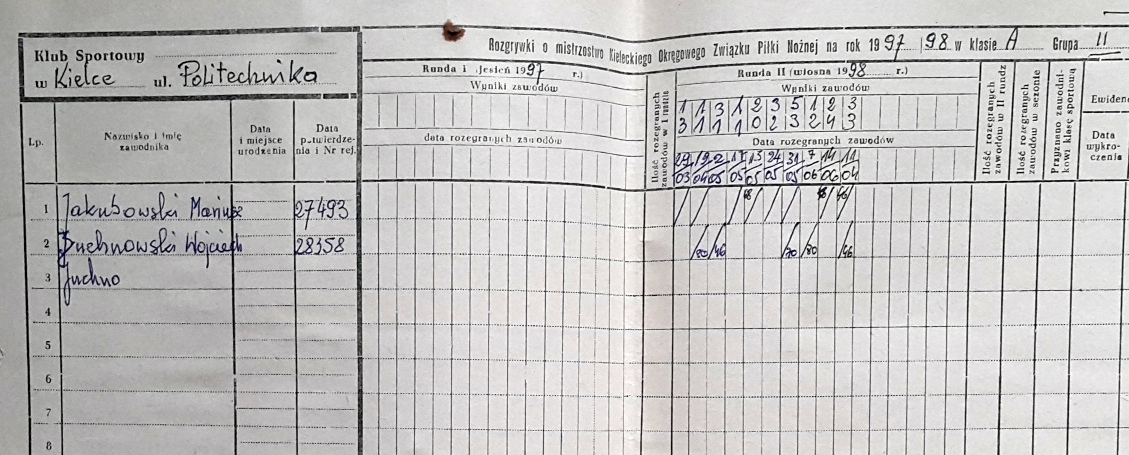 Klub Sportowy
w Kielce ul. Politechnika
Rozgrywki o mistrzostwo Kieleckiego Okręgowego Związku Piłki Nożnej na rok 1997/98 w klasie A Grupa II
Lp.
Nazwisko i imię zawodnika
Data i miejsce urodzenia
Data potwierdzenia i Nr rej.
Runda I (Jesień 1997 r.)
Wyniki zawodów
data rozegranych zawodów
Ilość rozegranych zawodów w I rundzie
Runda II (wiosna 1998 r.)
Wyniki zawodów
1 1 3 1 2 3 5 1 2 3
3 1 1 1 0 2 3 2 4 3
Data rozegranych zawodów
29 19 2 17 13 24 31 7 14 11
03 04 05 05 05 05 05 06 06 04
Ilość rozegranych zawodów w II rundz
Ilość rozegranych zawodów w sezonie
Przyznano zawodnikowi klasę sportową
Ewidenc
Data wykroczenia
1 Jakubowski Mariusz 27493
2 Suchnowski Wojciech 28358
80 46 70 80 46
3 Juchno
4
5
6
7
8